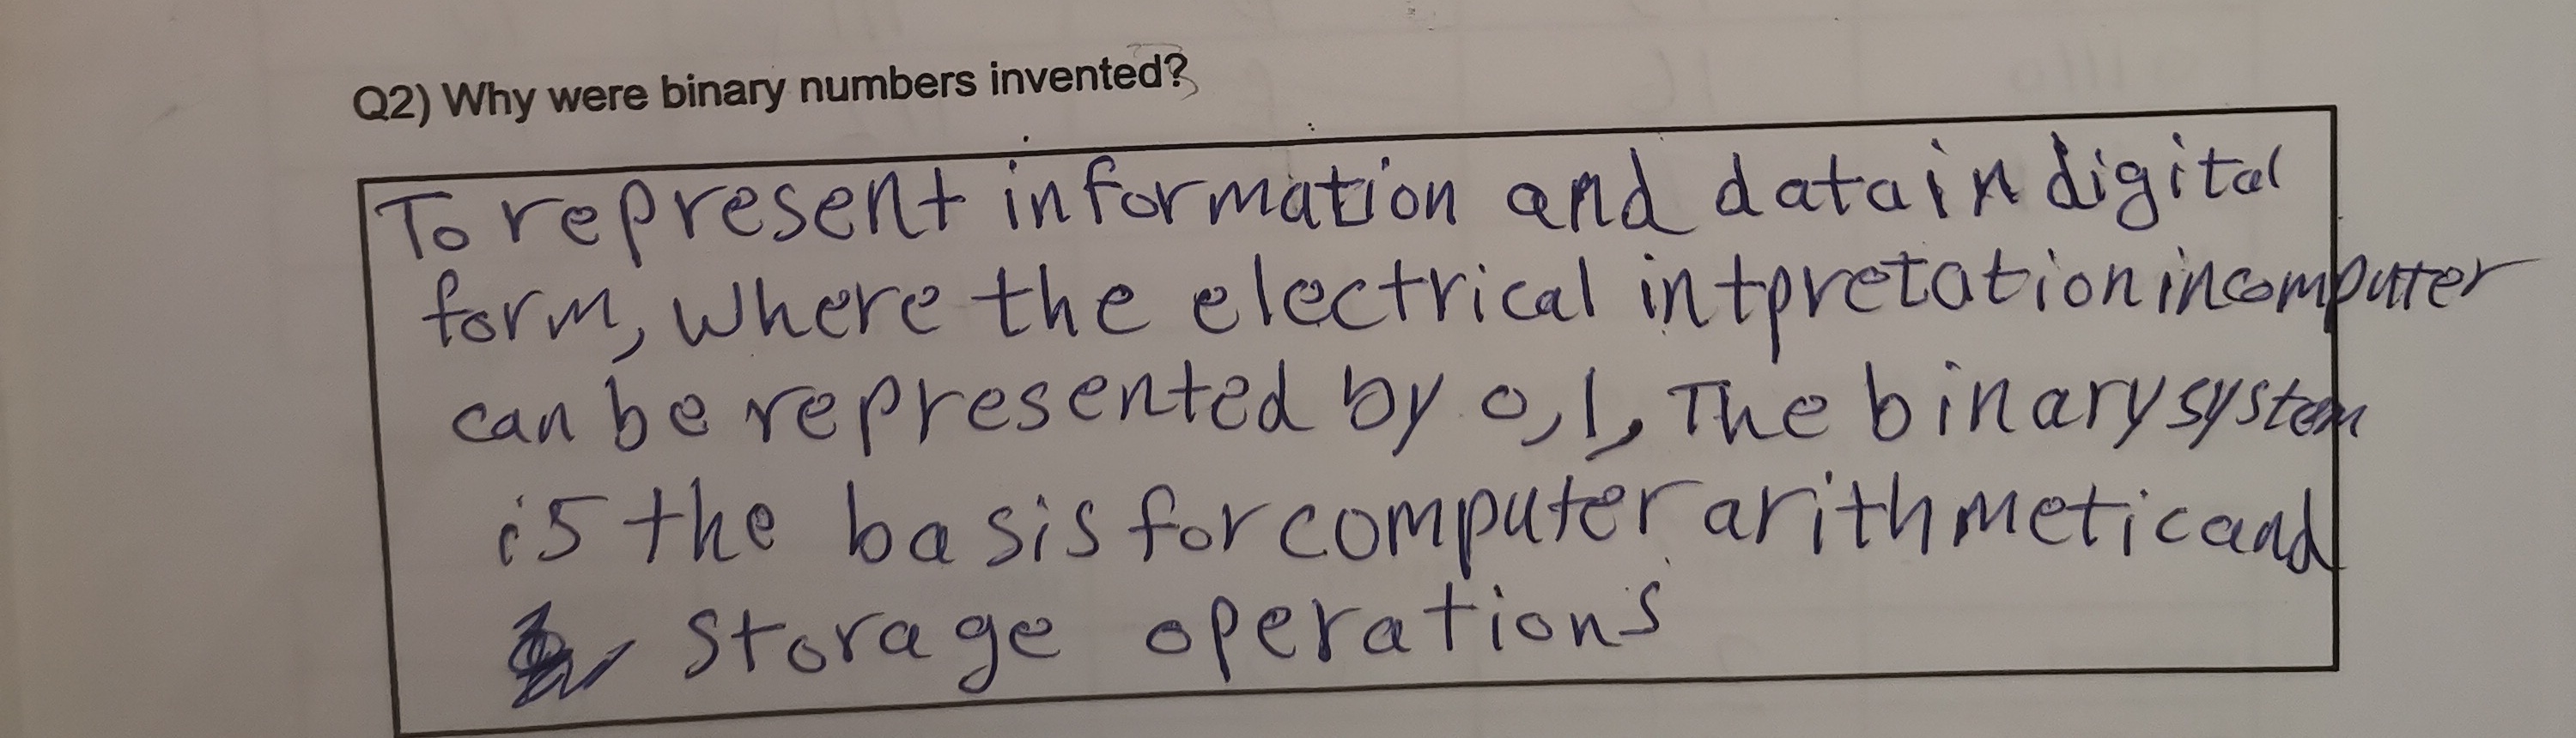 Q2) Why were binary numbers invented?
To represent information and data in digital
form, where the electrical intpretation in computer
can be represented by 0,1, The binary system
is the basis for computer arithmetic and
storage operations